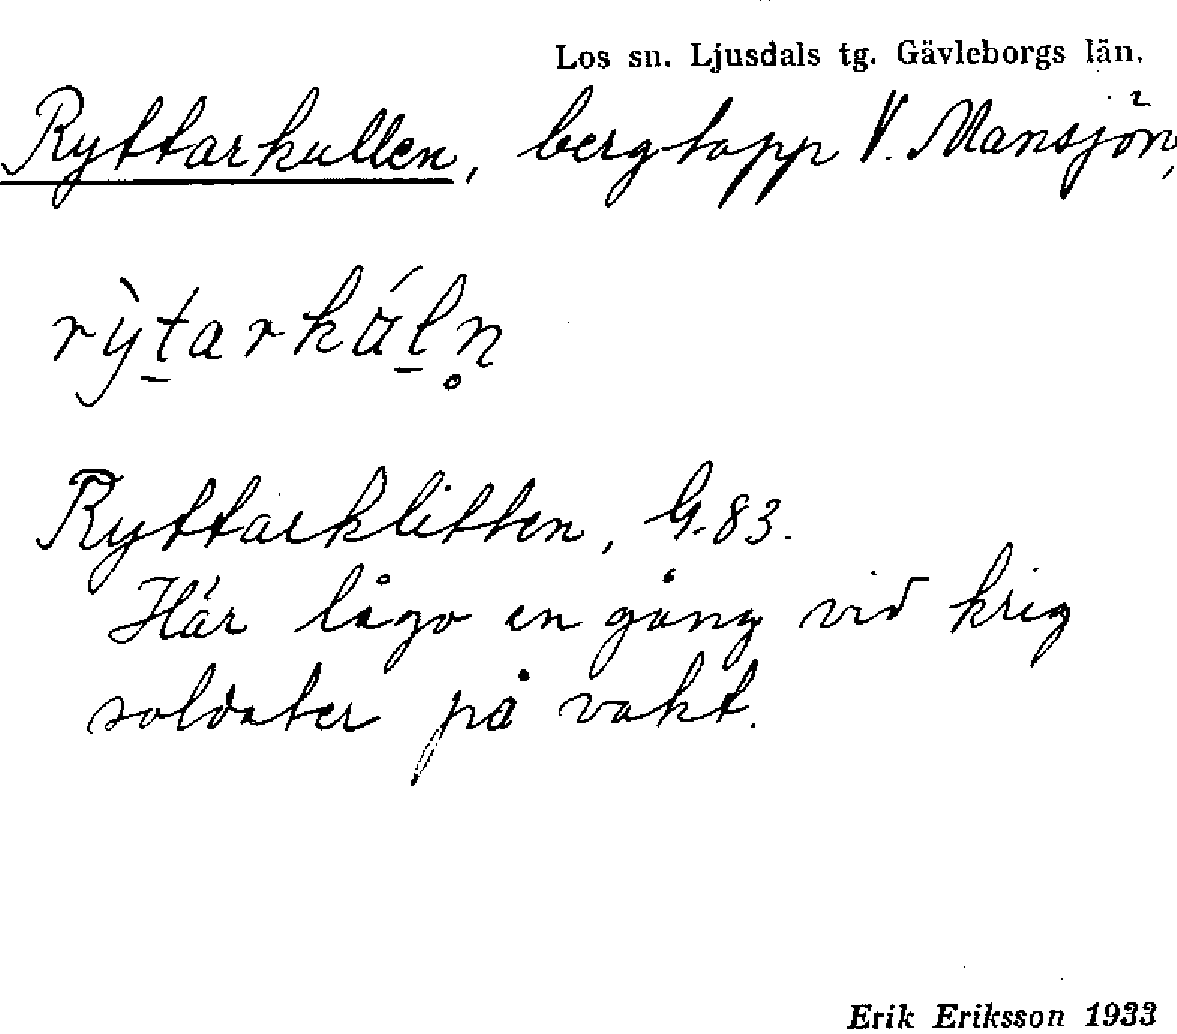 Los sn. Ljusdals tg. Gävleborgs län.
Ryttarkullen, bergtopp V. Mansjön,
rỳt̠arkά́l̠n̥
Ryttarklitten, G. 83.
Här lågo en gång vid krig
soldater på vakt.
Erik Eriksson 1933